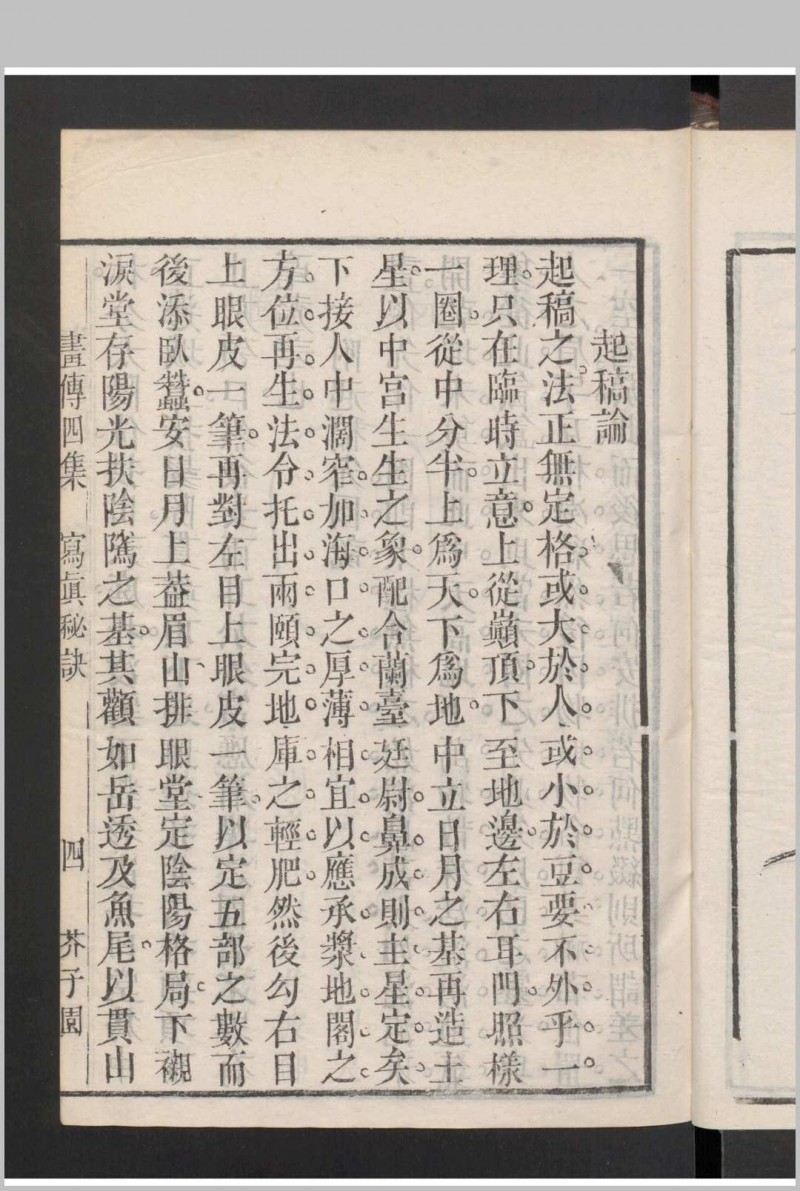 起稿論
起稿之法正無定格或大於人或小於豆要不外乎一
理只在臨時立意上從巔頂下至地邊左右耳門照樣
一圈從中分半上爲天下爲地中立日月之基再造土
星以中宮生生之象配合蘭臺廷尉鼻成則主星定矣
下接人中濶窄加海口之厚薄相宜以應承漿地閣之
方位再生法令托出兩頤完地庫之輕肥然後勾右目
上眼皮一筆再對左目上眼皮一筆以定五部之數而
後添臥蠶安日月上葢眉山排眼堂定陰陽格局下襯
淚堂存陽光扶陰隲之基其顴如岳透及魚尾以貫山
畫傳四集 寫眞秘訣 四 芥子園